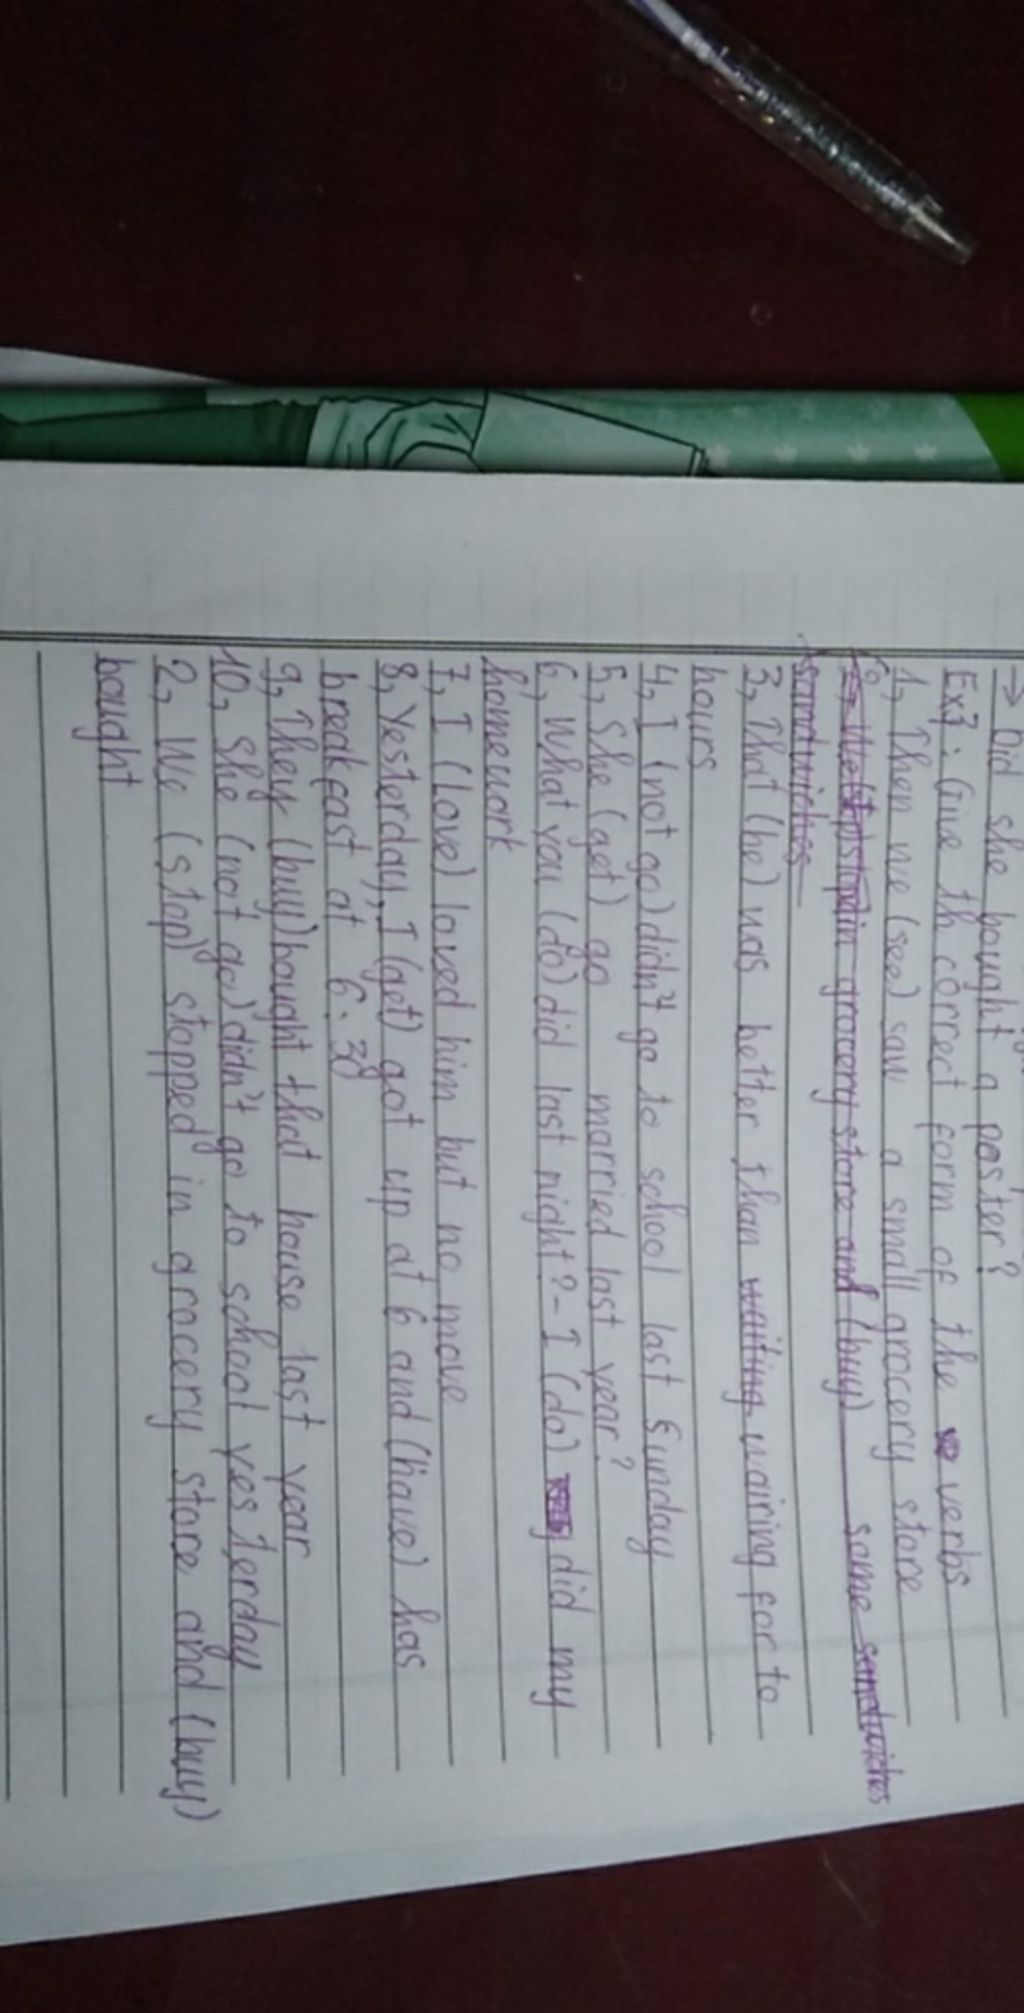 → Did she bought a poster?
Ex7: Give th correct form of the verbs
1, Then we (see) saw a small grocery store
in grocery store and (buy) some sandwiches
sandwiches
3, That (be) was better than waiting wairing for to
hours
4, I (not go) didn't go to school last Sunday
5, She (get) go married last year?
6, What you (do) did last night? - I (do) did my
homework
7, I (love) loved him but no move
8, Yesterday, I (get) got up at 6 and (have) has
breakfast at 6:30
9, They (buy) bought that house last year
10, She (not go) didn't go to school yesterday
2, We (stop) stopped in grocery store and (buy)
bought